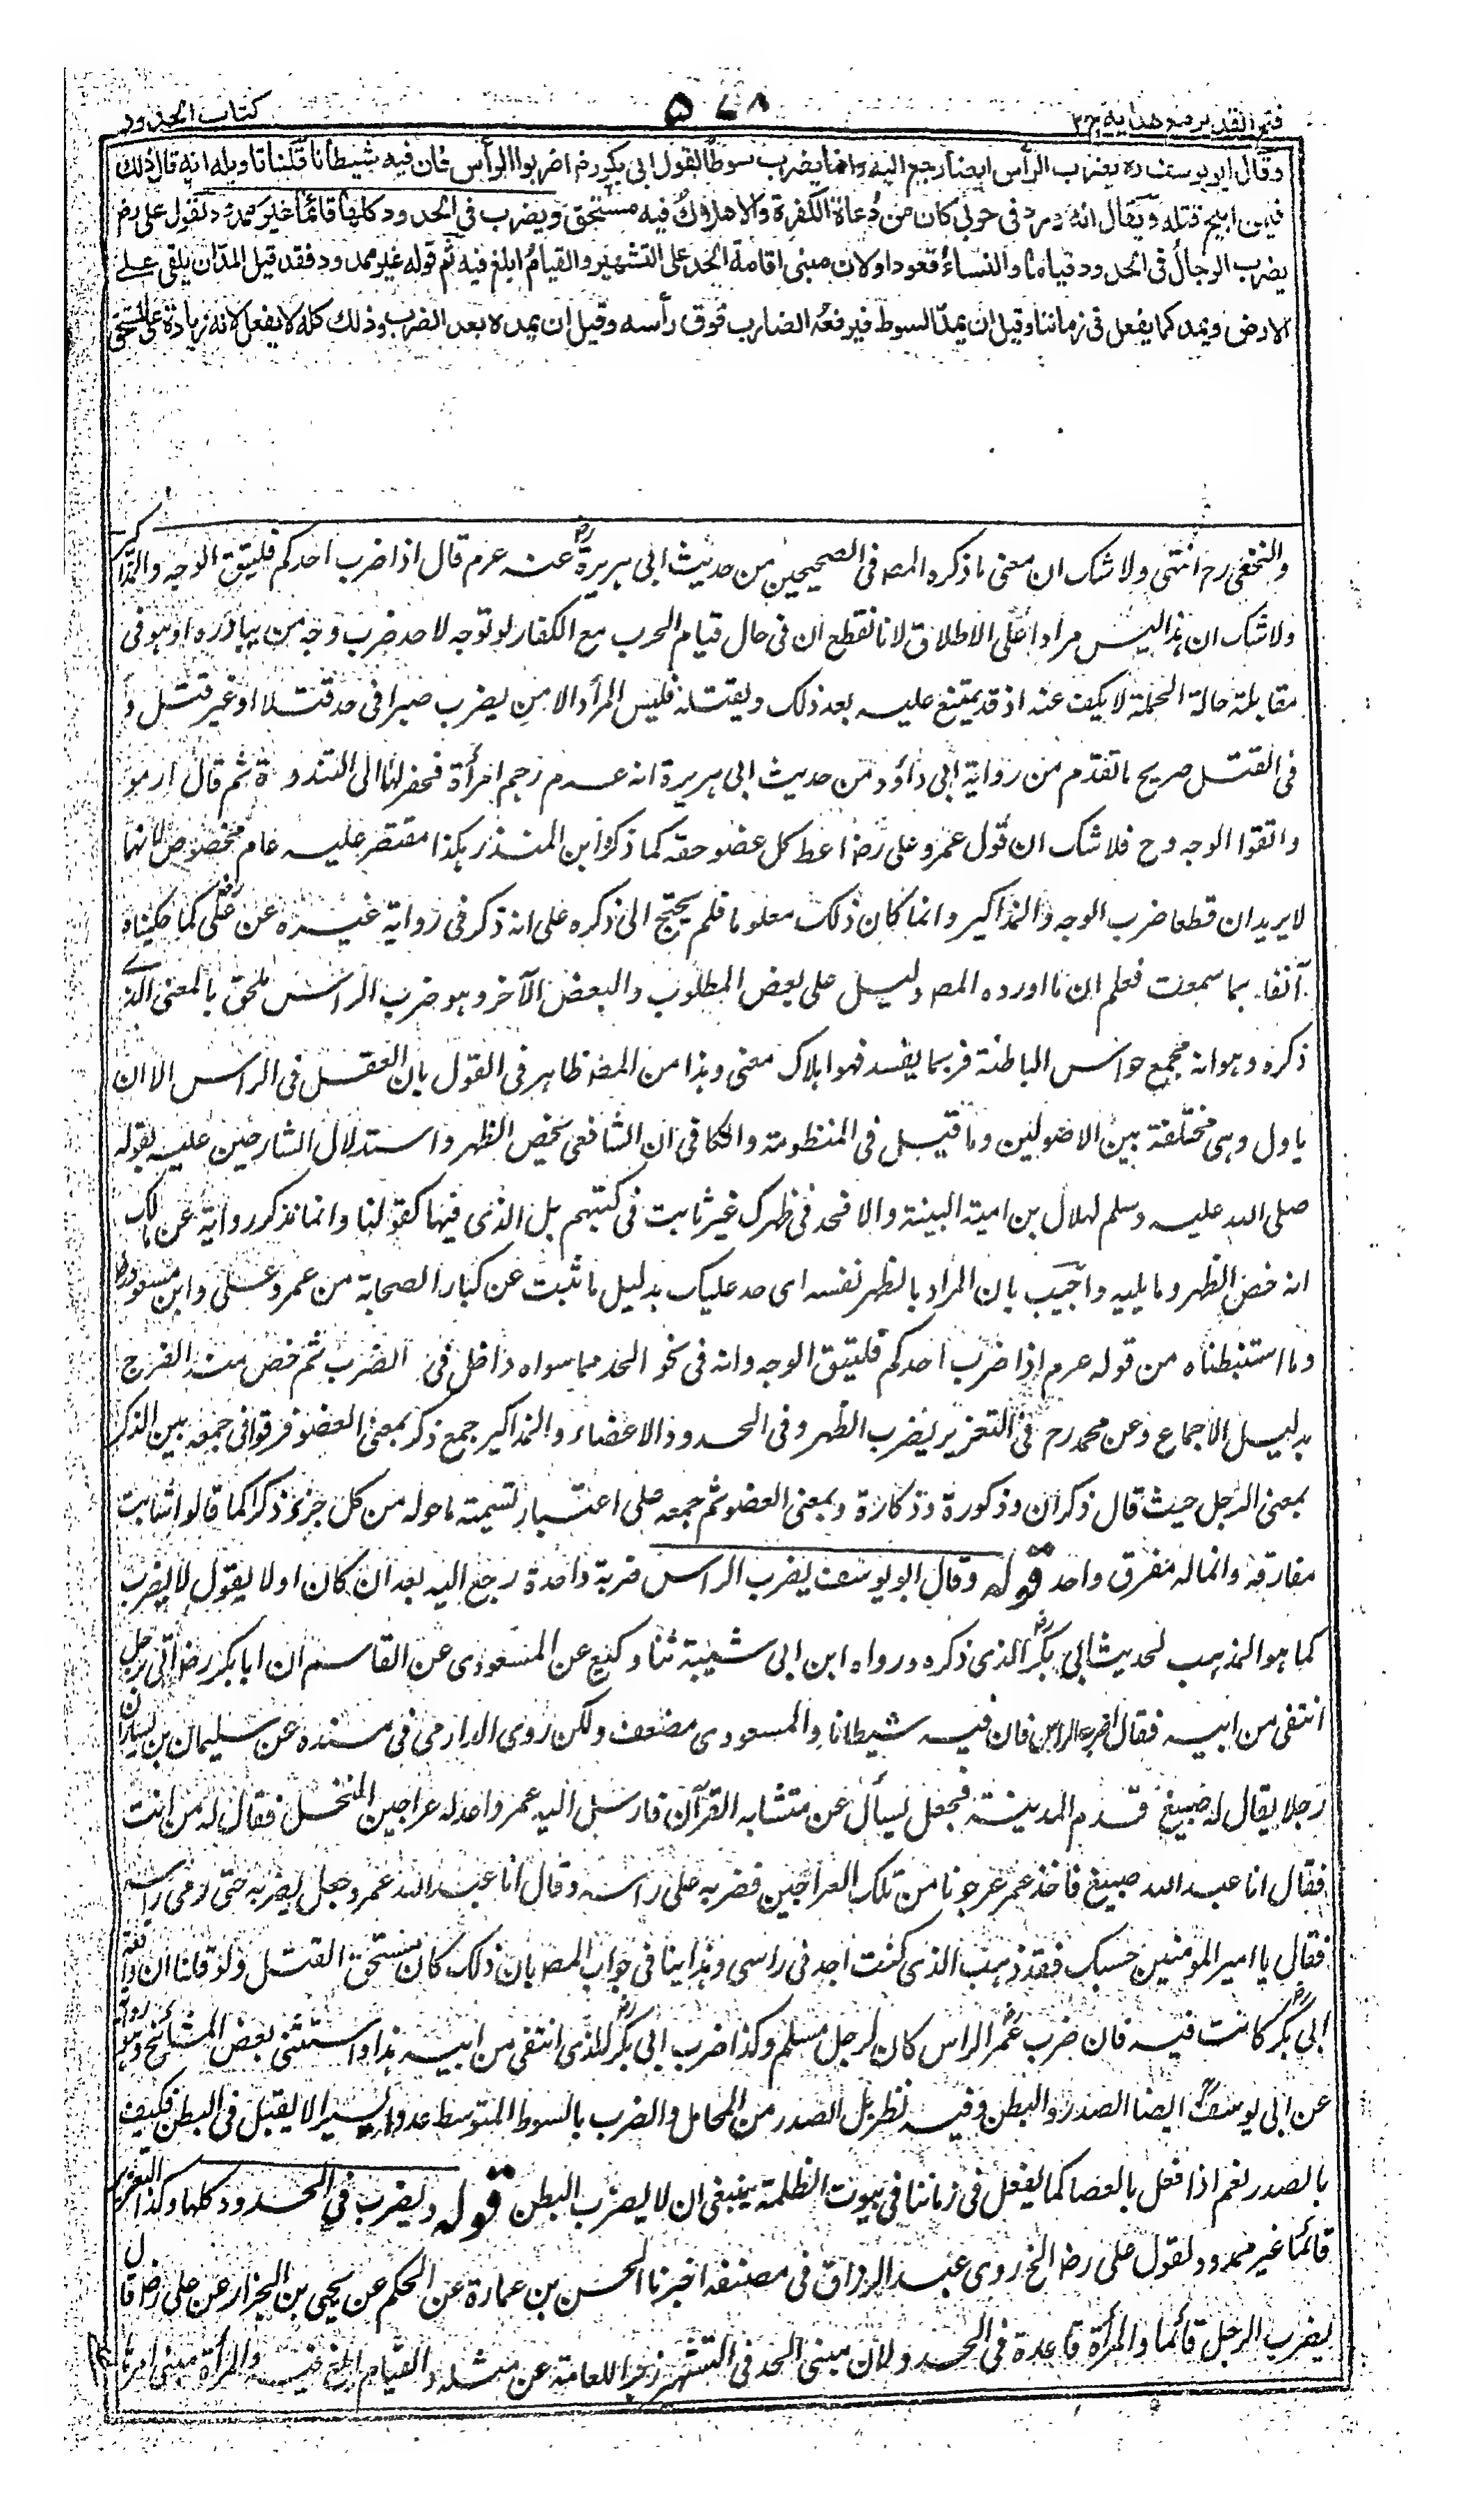 فتح القدير مع هداية ج ٢
٥٧٨
كتاب الحدود
وقال ابو يوسف ره يضرب الرأس ايضا رجع اليه وانما يضرب سوطا لقول ابى بكر رضـ اضربوا الرأس فان فيه شيطانا قلنا تاويله انه قال ذلك
فيمن ابيح قتله ويقال انه ورد فى حربى كان من دُعاة الكفرة والاهلاكُ فيه مستحق ويضرب فى الحدود كلها قائما غير ممدود لقول على رضـ
يضرب الرجال فى الحدود قياما والنساءُ قعودا ولان مبنى اقامة الحد على التشهير والقيامُ ابلغ فيه ثم قوله غير ممدود فقد قيل المدّ ان يلقى على
الارض ويمد كما يفعل فى زماننا وقيل ان يمدّ السوط فيرفعه الضارب فوق رأسه وقيل ان يمده بعد الضرب وذلك كله لا يفعل لانه زيادة على المستحق
والنخعى رح انتهى ولا شك ان معنى ما ذكره المصـ فى الصحيحين من حديث ابى هريرة رضـ عنه عرم قال اذا ضرب احدكم فليتق الوجه والمذاكير
ولا شك ان هذا ليس مرادا على الاطلاق لانا نقطع ان فى حال قيام الحرب مع الكفار لو توجه لاحد ضرب وجه من يبارزه او هو فى
مقابلته حالة الحملة لا يكف عنه اذ قد يمتنع عليه بعد ذلك ويقتله فليس المراد الا من يضرب صبرا فى حد قتلا او غير قتل و
فى القتل صريح ما تقدم من رواية ابى داؤد من حديث ابى هريرة انه عرم رجم امرأة فحفر لها الى الثندوة ثم قال ارموا
واتقوا الوجه وح فلا شك ان قول عمر وعلى رضـ اعط كل عضو حقه كما ذكره ابن المنذر هكذا مقتصر عليه عام مخصوص لانهما
لا يريدان قطعا ضرب الوجه والمذاكير وانما كان ذلك معلوما فلم يحتج الى ذكره على انه ذكر فى رواية غيره عن على رضـ كما حكيناه
آنفا بما سمعت فعلم ان ما اورده المصـ دليل على بعض المطلوب والبعض الآخر وهو ضرب الراس ملحق بالمعنى الذى
ذكره وهو انه مجمع حواس الباطنة فربما يفسد فهو اهلاك معنى وهذا من المصـ ظاهر فى القول بان العقل فى الراس الا ان
ياول وهى مختلفة بين الاصولين وما قيل فى المنظومة والكافى ان الشافعى يخص الظهر واستدلال الشارحين عليه بقوله
صلى الله عليه وسلم لهلال بن امية البينة والا فحد فى ظهرك غير ثابت فى كتبهم بل الذى فيها كقولنا وانما تذكر رواية عن مالك
انه خص الظهر وما يليه واجيب بان المراد بالظهر نفسه اى حد عليك بدليل ما ثبت عن كبار الصحابة من عمر وعلى وابن مسعود رضـ
وما استنبطناه من قوله عرم اذا ضرب احدكم فليتق الوجه وانه فى نحو الحد مما سواه داخل فى الضرب ثم خص منه الفرج
بدليل الاجماع وعن محمد رح فى التعزير يضرب الظهر وفى الحدود الاعضاء والمذاكير جمع ذكر بمعنى العضو فرقوا فى جمعه بين الذكر
بمعنى الرجل حيث قال ذكران وذكورة وذكارة وبمعنى العضو ثم جمعه على اعتبار تسمية ما حوله من كل جزء ذكرا كما قالوا شابت
مفارقه وانما له مفرق واحد قوله وقال ابو يوسف يضرب الراس ضربة واحدة رجع اليه بعد ان كان اولا يقول لا يضرب
كما هو المذهب لحديث ابى بكر رضـ الذى ذكره ورواه ابن ابى شيبة ثنا وكيع عن المسعودى عن القاسم ان ابا بكر رضـ اتى برجل
انتفى من ابيه فقال اضرب الراس فان فيه شيطانا والمسعودى مضعف ولكن روى الدارمى فى مسنده عن سليمان بن يسار ان
رجلا يقال له صبيغ قدم المدينة فجعل يسأل عن متشابه القرآن فارسل اليه عمر واعد له عراجين النخل فقال له من انت
فقال انا عبد الله صبيغ فاخذ عمر عرجونا من تلك العراجين فضربه على راسه وقال انا عبد الله عمر وجعل يضربه حتى ادمى راسه
فقال يا امير المومنين حسبك فقد ذهب الذى كنت اجد فى راسى وهذا ينافى جواب المصـ بان ذلك كان يستحق القتل ولو قلنا ان واقعة
ابى بكر رضـ كانت فيه فان ضرب عمر الراس كان لرجل مسلم وكذا ضرب ابى بكر رضـ للذى انتفى من ابيه هذا واستثنى بعض المشائخ وهو رواية
عن ابى يوسف رح ايضا الصدر والبطن وفيه نظر بل الصدر من المحامل والضرب بالسوط المتوسط عددا يسيرا لا يقتل فى البطن فكيف
بالصدر نعم اذا فعل بالعصا كما يفعل فى زماننا فى بيوت الظلمة ينبغى ان لا يضرب البطن قوله ويضرب فى الحدود كلها وكذا التعزير
قائما غير ممدود لقول على رضـ الخ روى عبد الرزاق فى مصنفه اخبرنا الحسن بن عمارة عن الحكم عن يحيى بن الجزار عن على رضـ قال
يضرب الرجل قائما والمرأة قاعدة فى الحد ولان مبنى الحد فى التشهير زجرا للعامة عن مثله والقيام ابلغ فيه والمرأة مبنى امرها